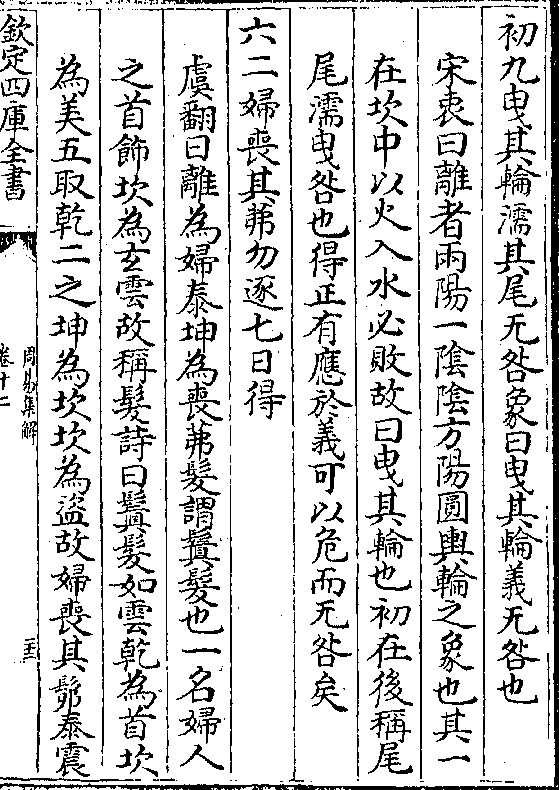 初九曳其輪濡其尾无咎象曰曳其輪義无咎也
宋衷曰離者兩陽一陰陰方陽圓輿輪之象也其一
在坎中以火入水必敗故曰曳其輪也初在後稱尾
尾濡曳咎也得正有應於義可以危而无咎矣
六二婦喪其茀勿逐七日得
虞翻曰離為婦泰坤為喪茀髮謂鬒髮也一名婦人
之首飾坎為玄雲故稱髮詩曰鬒髮如雲乾為首坎
為美五取乾二之坤為坎坎為盜故婦喪其髴泰震
欽定四庫全書
周易集解
卷十二